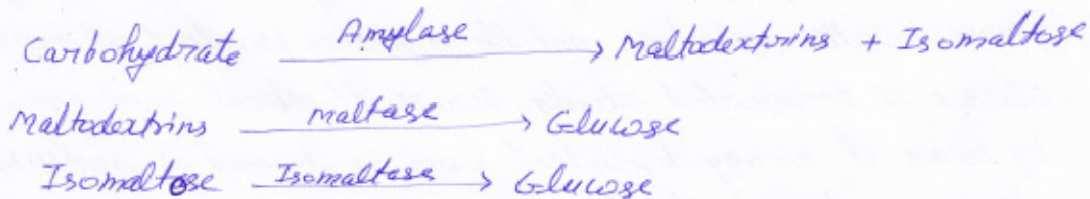 Carbohydrate Amylase → Maltodextrins + Isomaltose
Maltodextrins maltase → Glucose
Isomaltose Isomaltase → Glucose